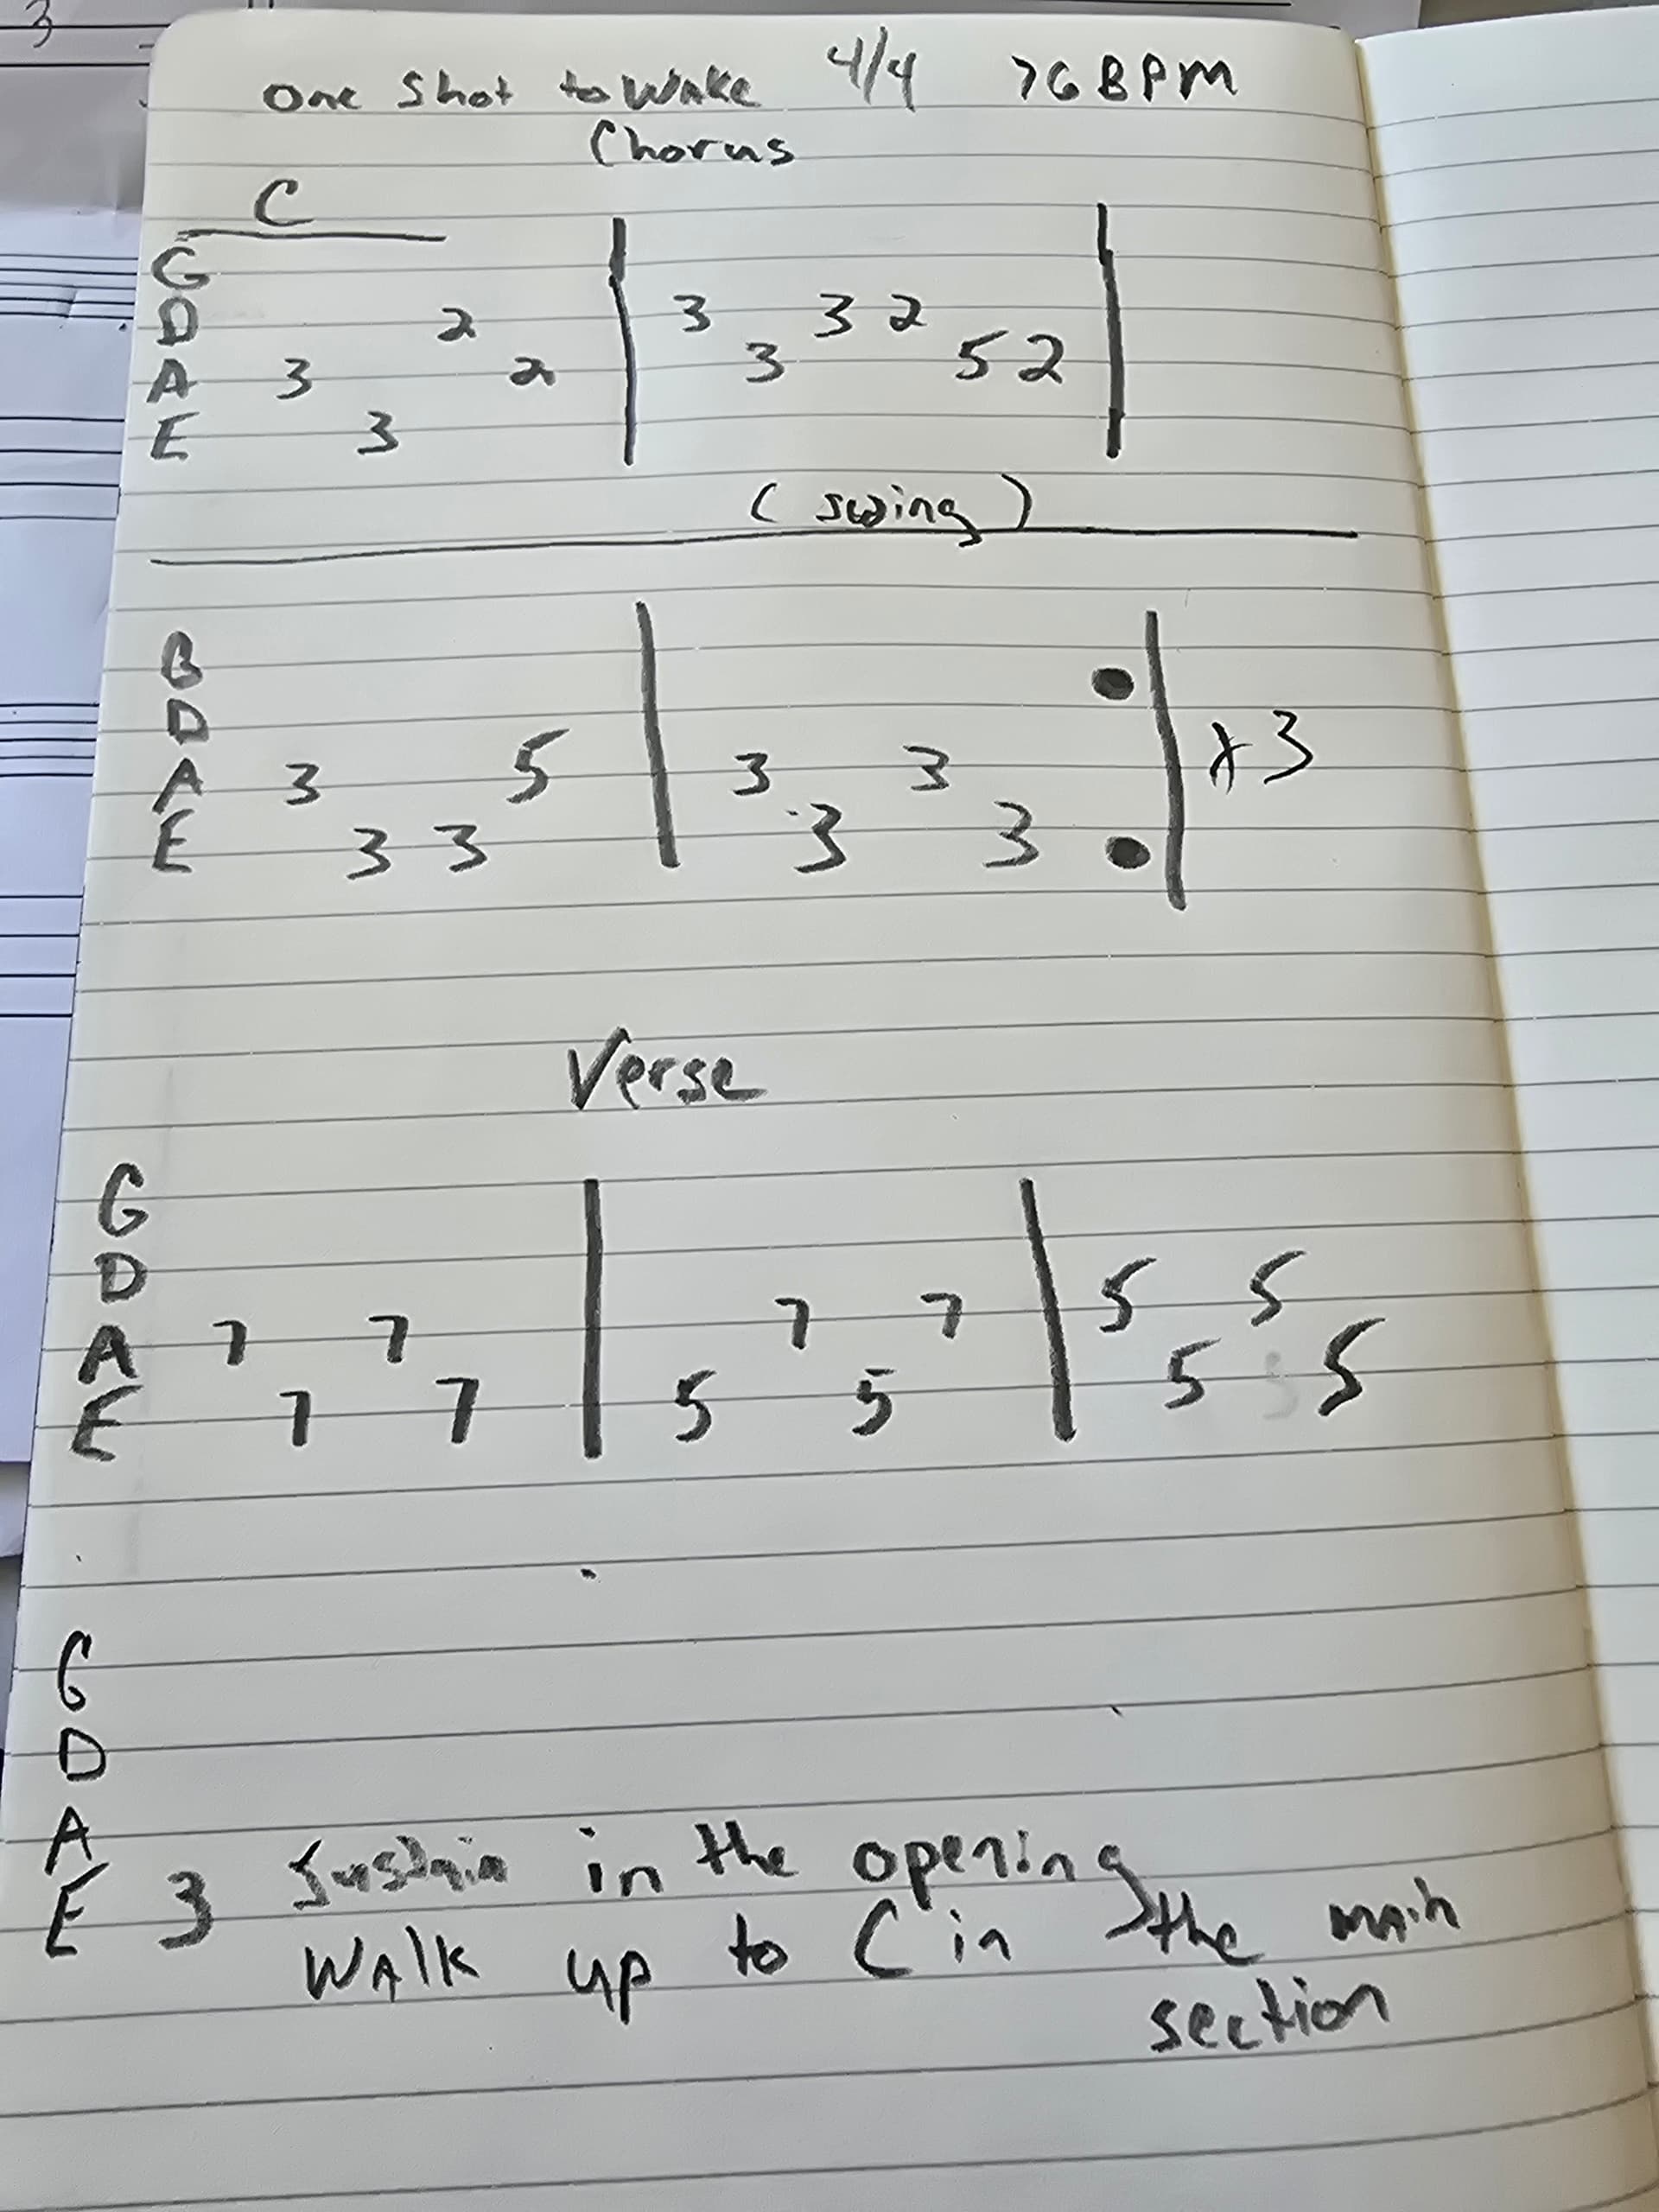 3
One Shot to Wake 4/4 76 BPM
Chorus
C
G
D 2 | 3 3 2 |
A 3 2 | 3 5 2 |
E 3 | |
(swing)
G
D
A 3 5 | 3 3 x3
E 3 3 | 3 3
Verse
G
D
A 7 7 | 7 7 | 5 5
E 7 7 | 5 5 | 5 5
G
D
A
E 3 Sustain in the opening
Walk up to C in the main
section